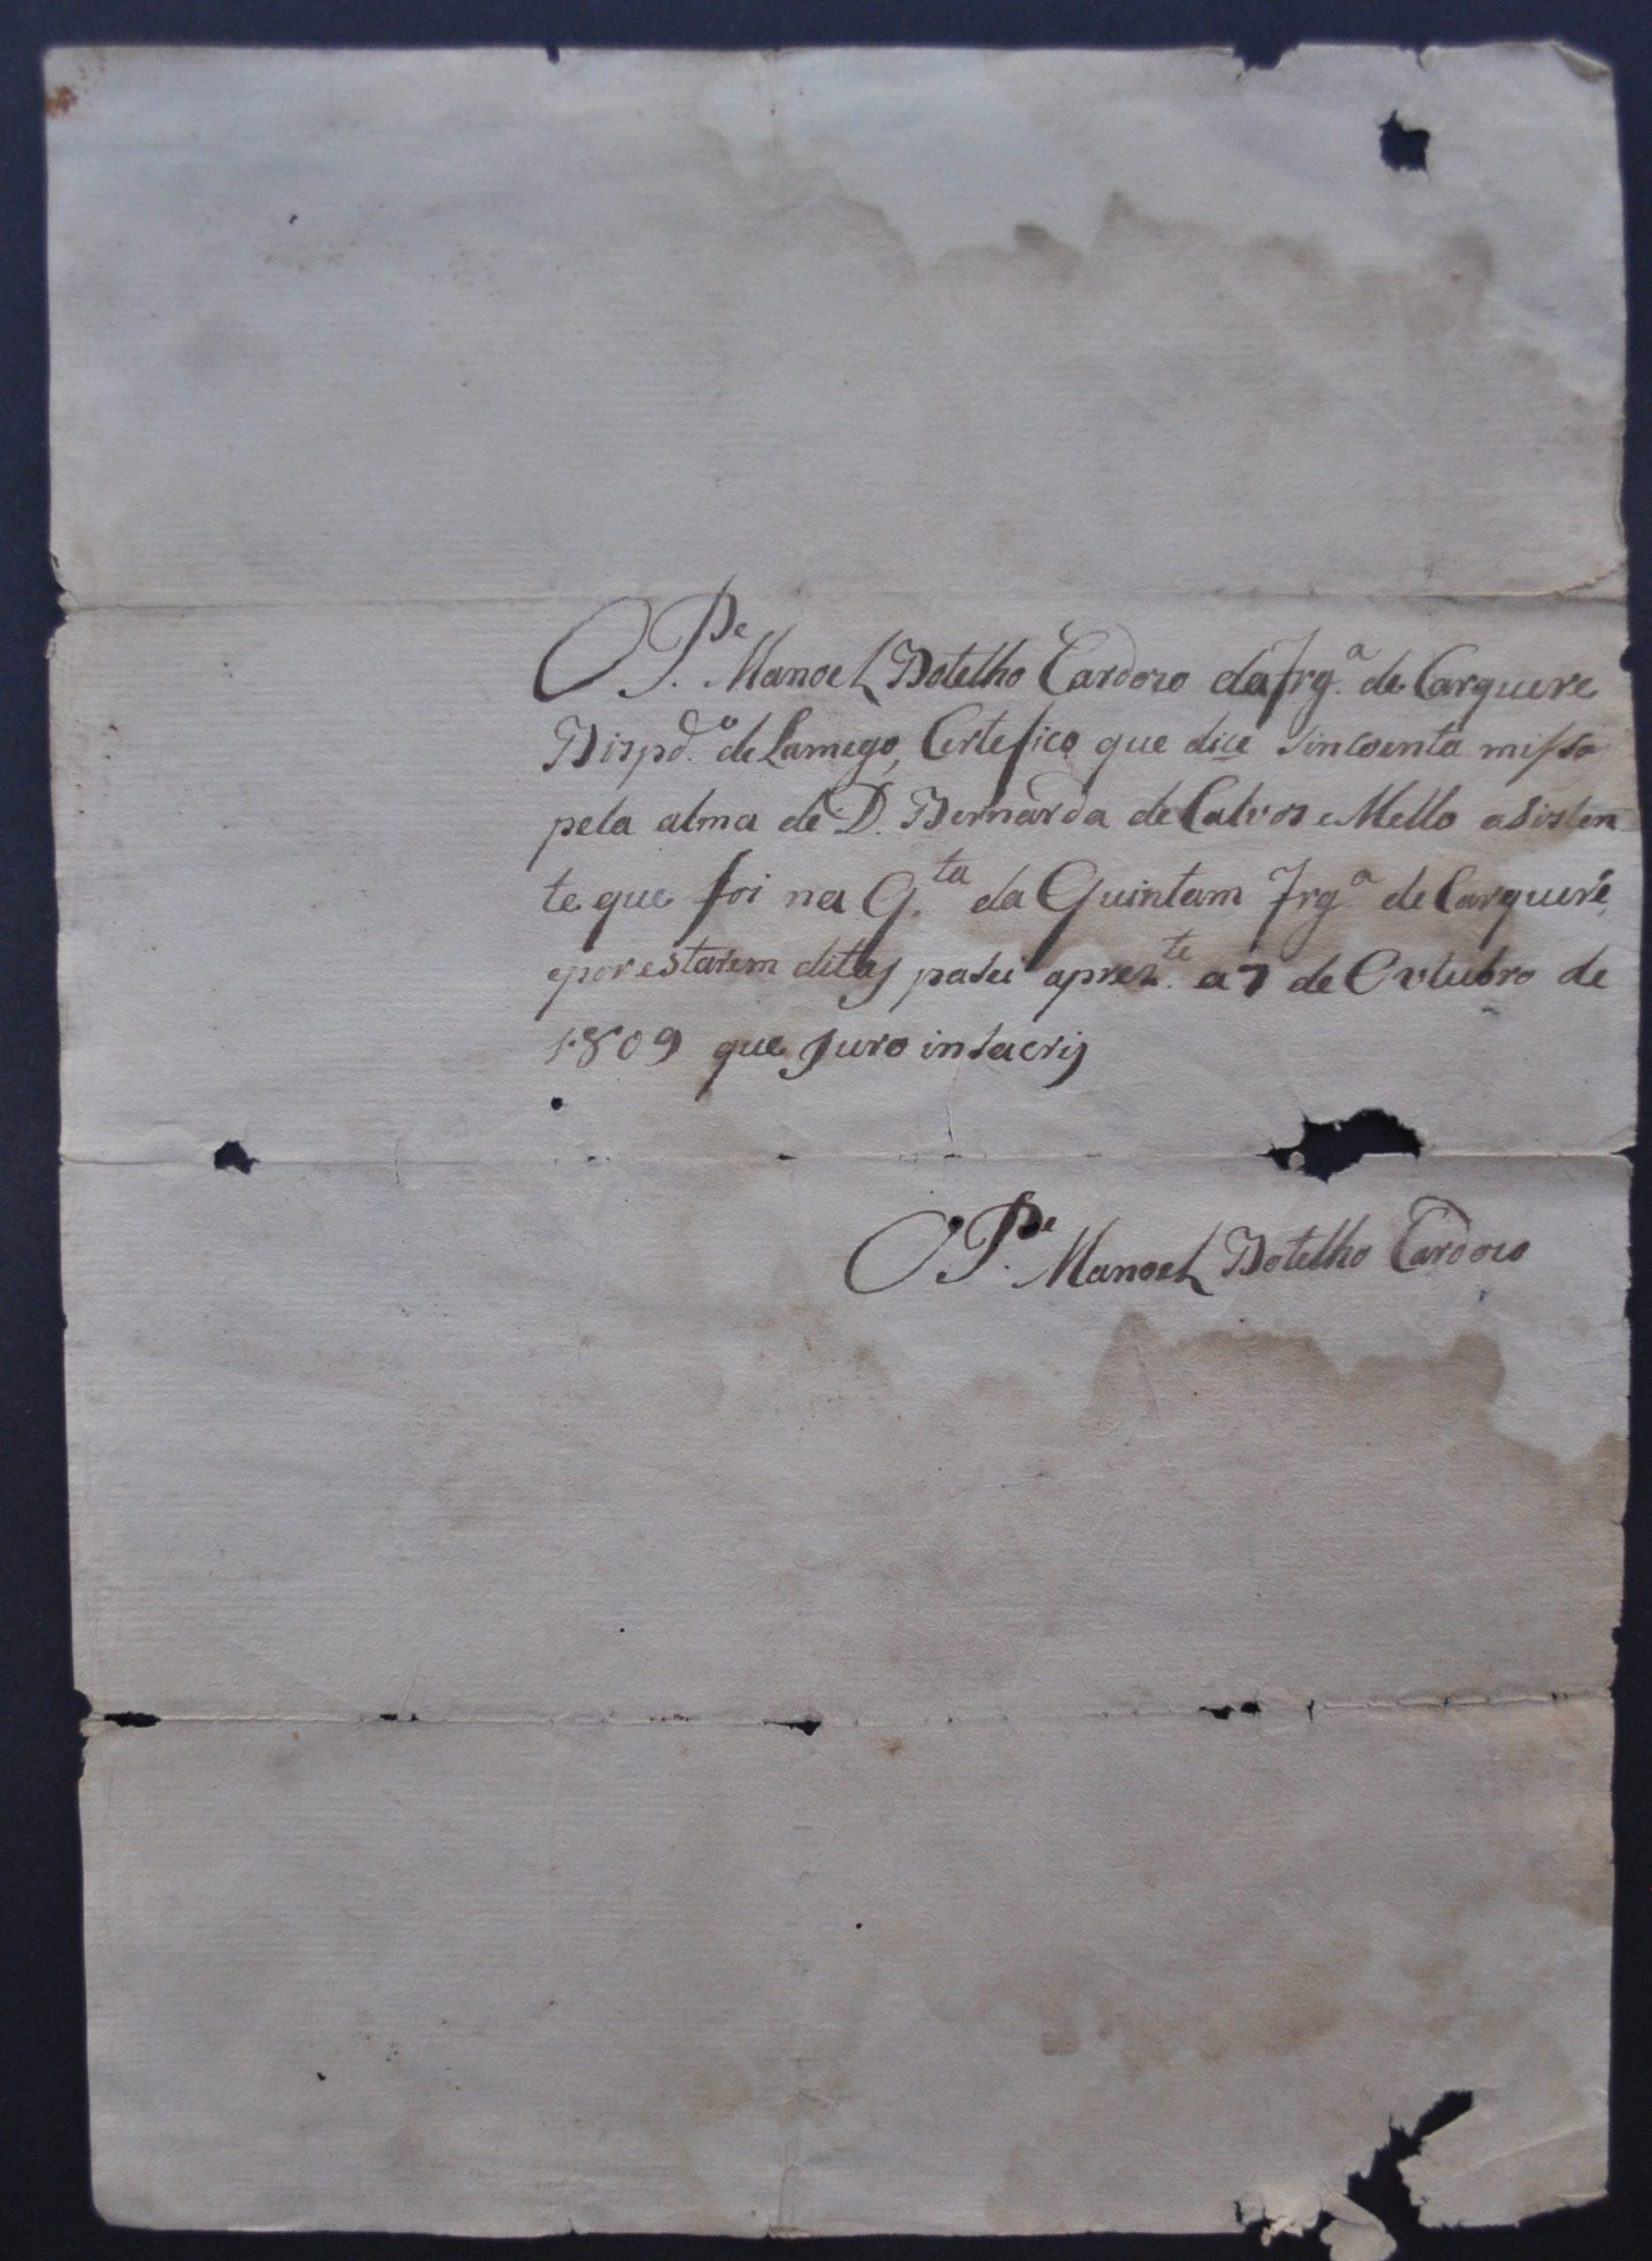 O P.e Manoel Botelho Cardozo da Frg.a de Carquere
Bispd.o de Lamego, Certefico que dice sincoenta missa
pela alma de D. Bernarda de Calvos e Mello asisten
te que foi na Q.ta da Quintam Frg.a de Carquere,
e por estarem ditas pasei a prez.te a 7 de Outubro de
1809 que Juro in sacris
O P.e Manoel Botelho Cardozo